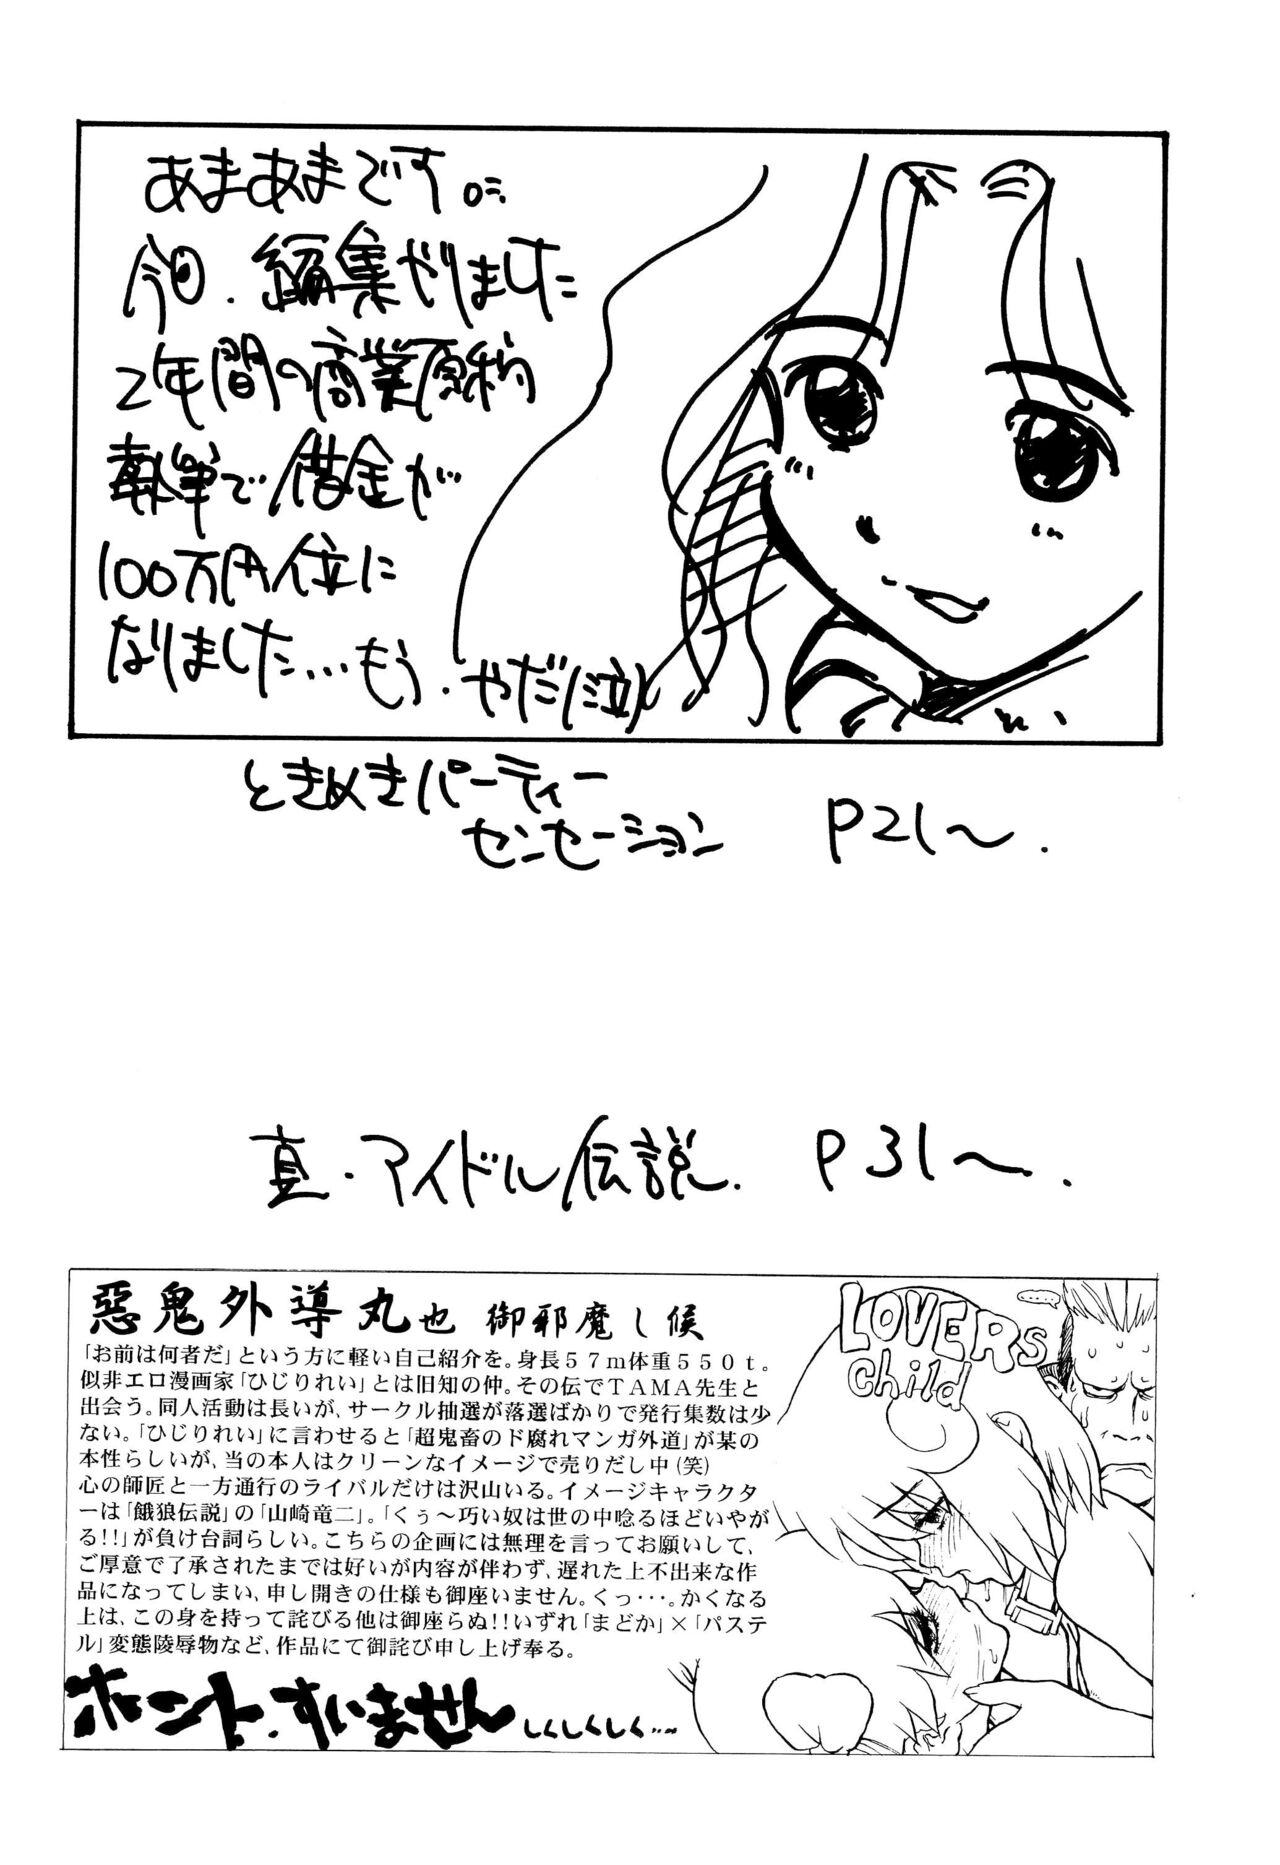 あまあまです。
今回、編集やりました
2年間の商業原稿
執筆で借金が
100万円位に
なりました…もう、やだ(泣)
ときめきパーティー
センセーション P21〜.
真・アイドル伝説. P31〜.
惡鬼外導丸也 御邪魔し候
「お前は何者だ」という方に軽い自己紹介を。身長57m体重550t。
似非エロ漫画家「ひじりれい」とは旧知の仲。その伝でTAMA先生と
出会う。同人活動は長いが、サークル抽選が落選ばかりで発行集数は少
ない。「ひじりれい」に言わせると「超鬼畜のド腐れマンガ外道」が某の
本性らしいが、当の本人はクリーンなイメージで売りだし中(笑)
心の師匠と一方通行のライバルだけは沢山いる。イメージキャラクタ
ーは「餓狼伝説」の「山崎竜二」。「くぅ〜巧い奴は世の中唸るほどいやが
る!!」が負け台詞らしい。こちらの企画には無理を言ってお願いして、
ご厚意で了承されたまでは好いが内容が伴わず、遅れた上不出来な作
品になってしまい、申し開きの仕様も御座いません。くっ・・・。かくなる
上は、この身を持って詫びる他は御座らぬ!!いずれ「まどか」×「パステ
ル」変態陵辱物など、作品にて御詫び申し上げ奉る。
ホント、すいません しくしくしく…
LOVERS
Child
……